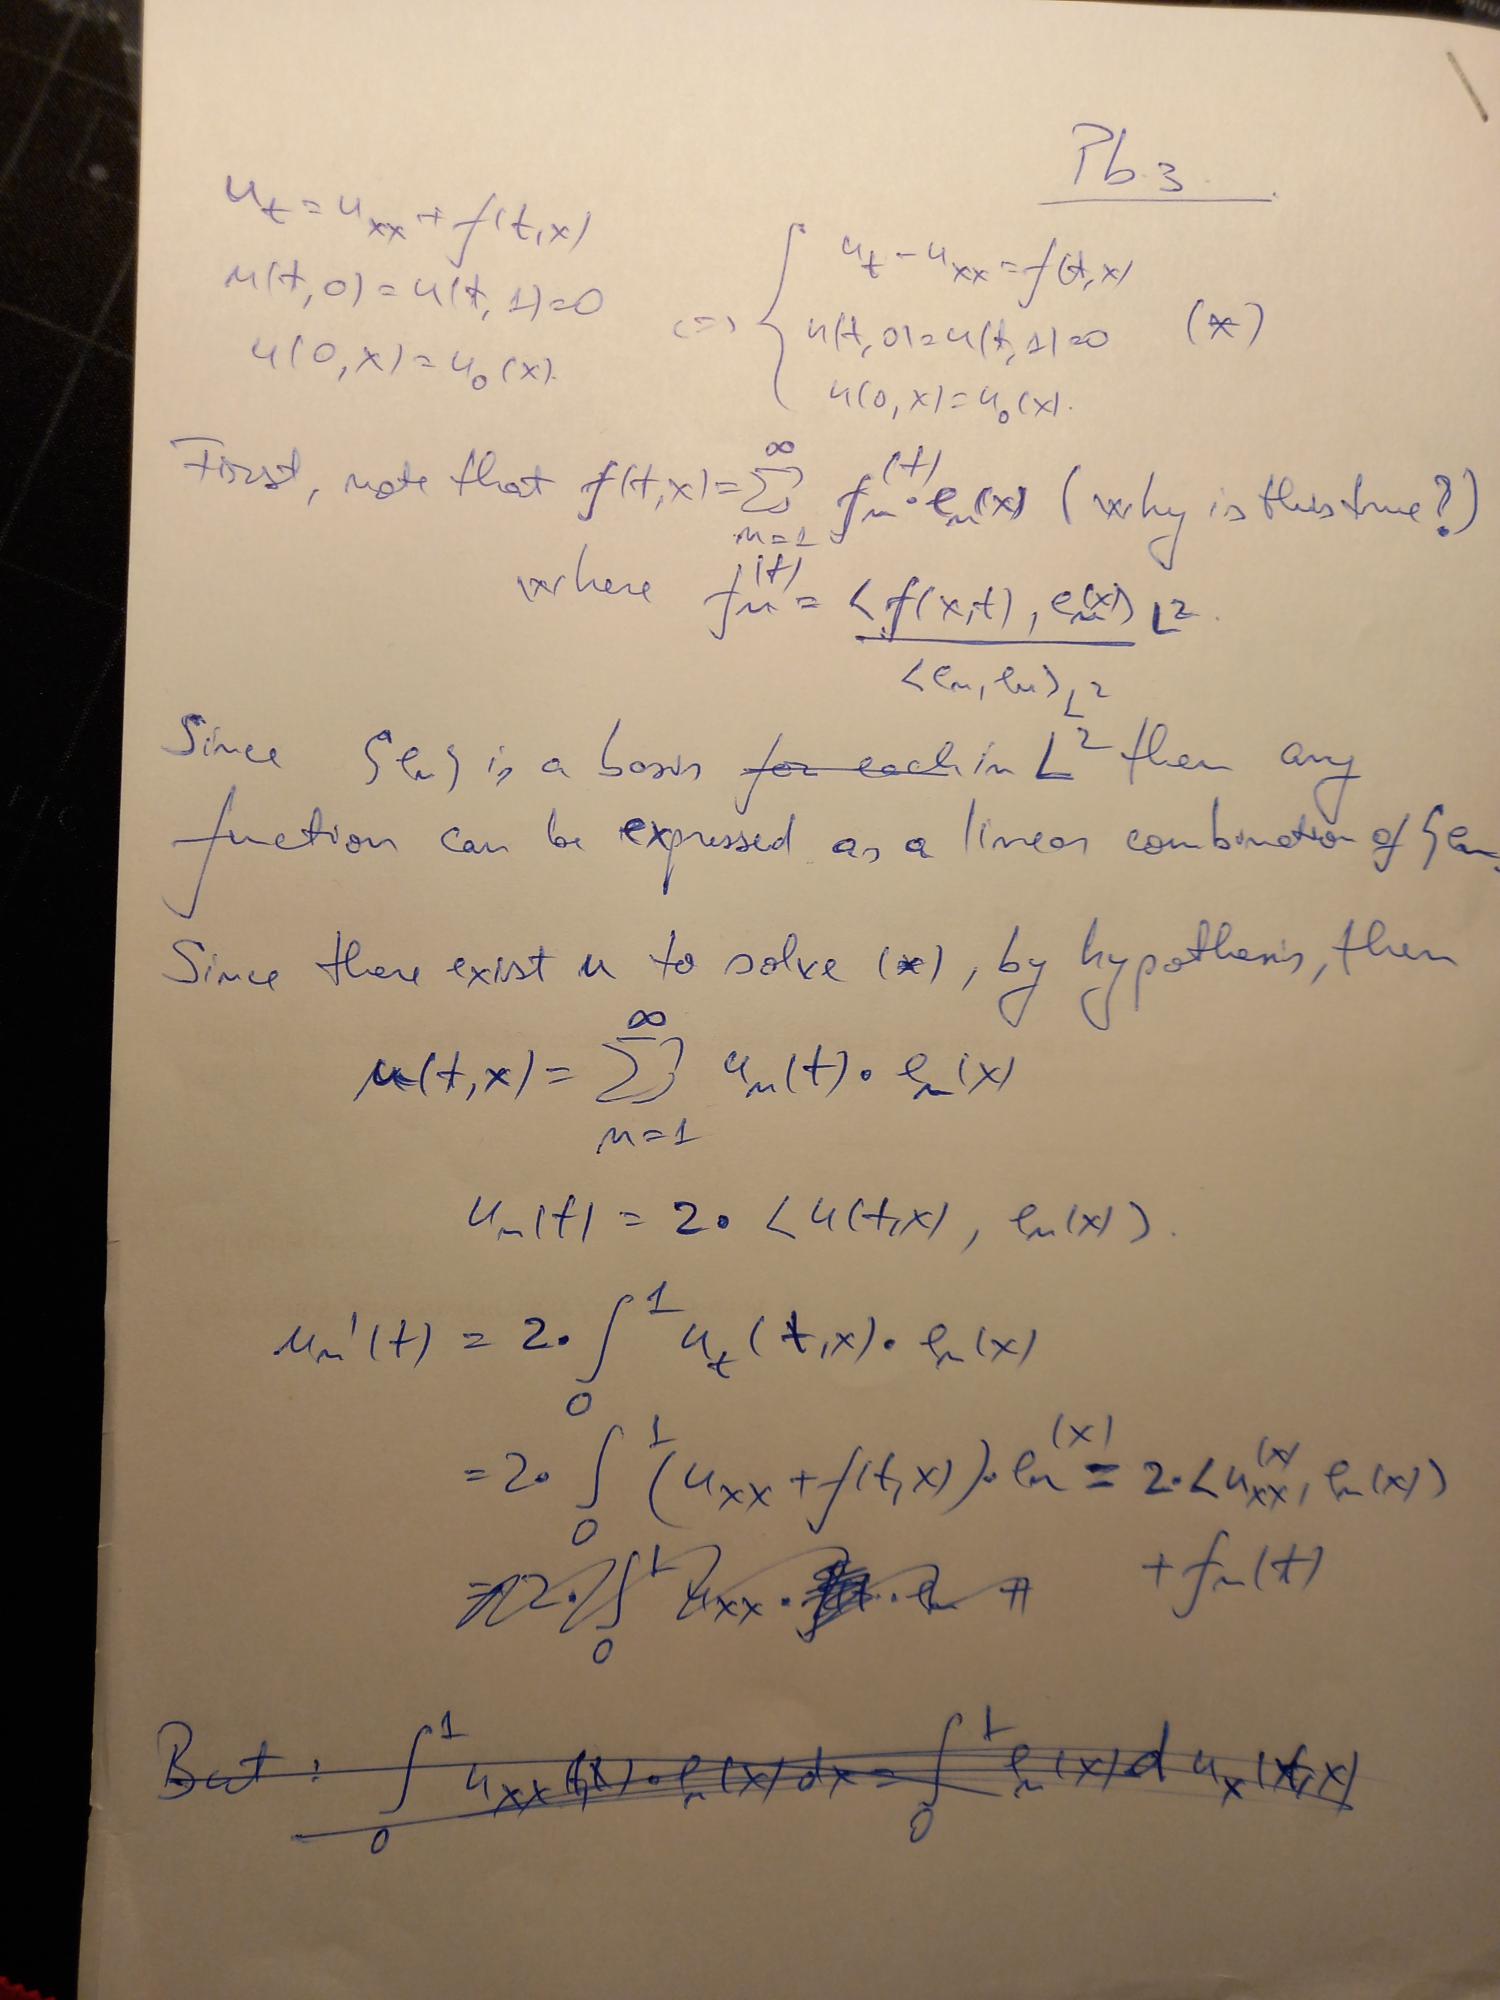 Pb.3.
u_t = u_xx + f(t,x)
u(t,0) = u(t,1) = 0
u(0,x) = u_0(x).
<=> { u_t - u_xx = f(t,x)
u(t,0) = u(t,1) = 0 (*)
u(0,x) = u_0(x).
First, note that f(t,x) = ∑_{n=1}^{∞} f_n(t) · e_n(x) (why is this true?)
where f_n(t) = <f(x,t), e_n(x)>_{L^2} / <e_n, e_n>_{L^2}.
Since {e_n} is a basis for each in L^2 then any
function can be expressed as a linear combination of {e_n
Since there exist u to solve (*), by hypothesis, then
u(t,x) = ∑_{n=1}^{∞} u_n(t) · e_n(x)
u_n(t) = 2 · <u(t,x), e_n(x)>.
u_n'(t) = 2 · ∫_0^1 u_t(t,x) · e_n(x)
= 2 · ∫_0^1 (u_xx + f(t,x)) · e_n(x) = 2 · <u_xx(x), e_n(x)>
+ f_n(t)
= 2 · ∫_0^1 u_xx · · e_n +
But : ∫_0^1 u_xx(t,x) · e_n(x) dx = ∫_0^1 e_n(x) d u_x(t,x)